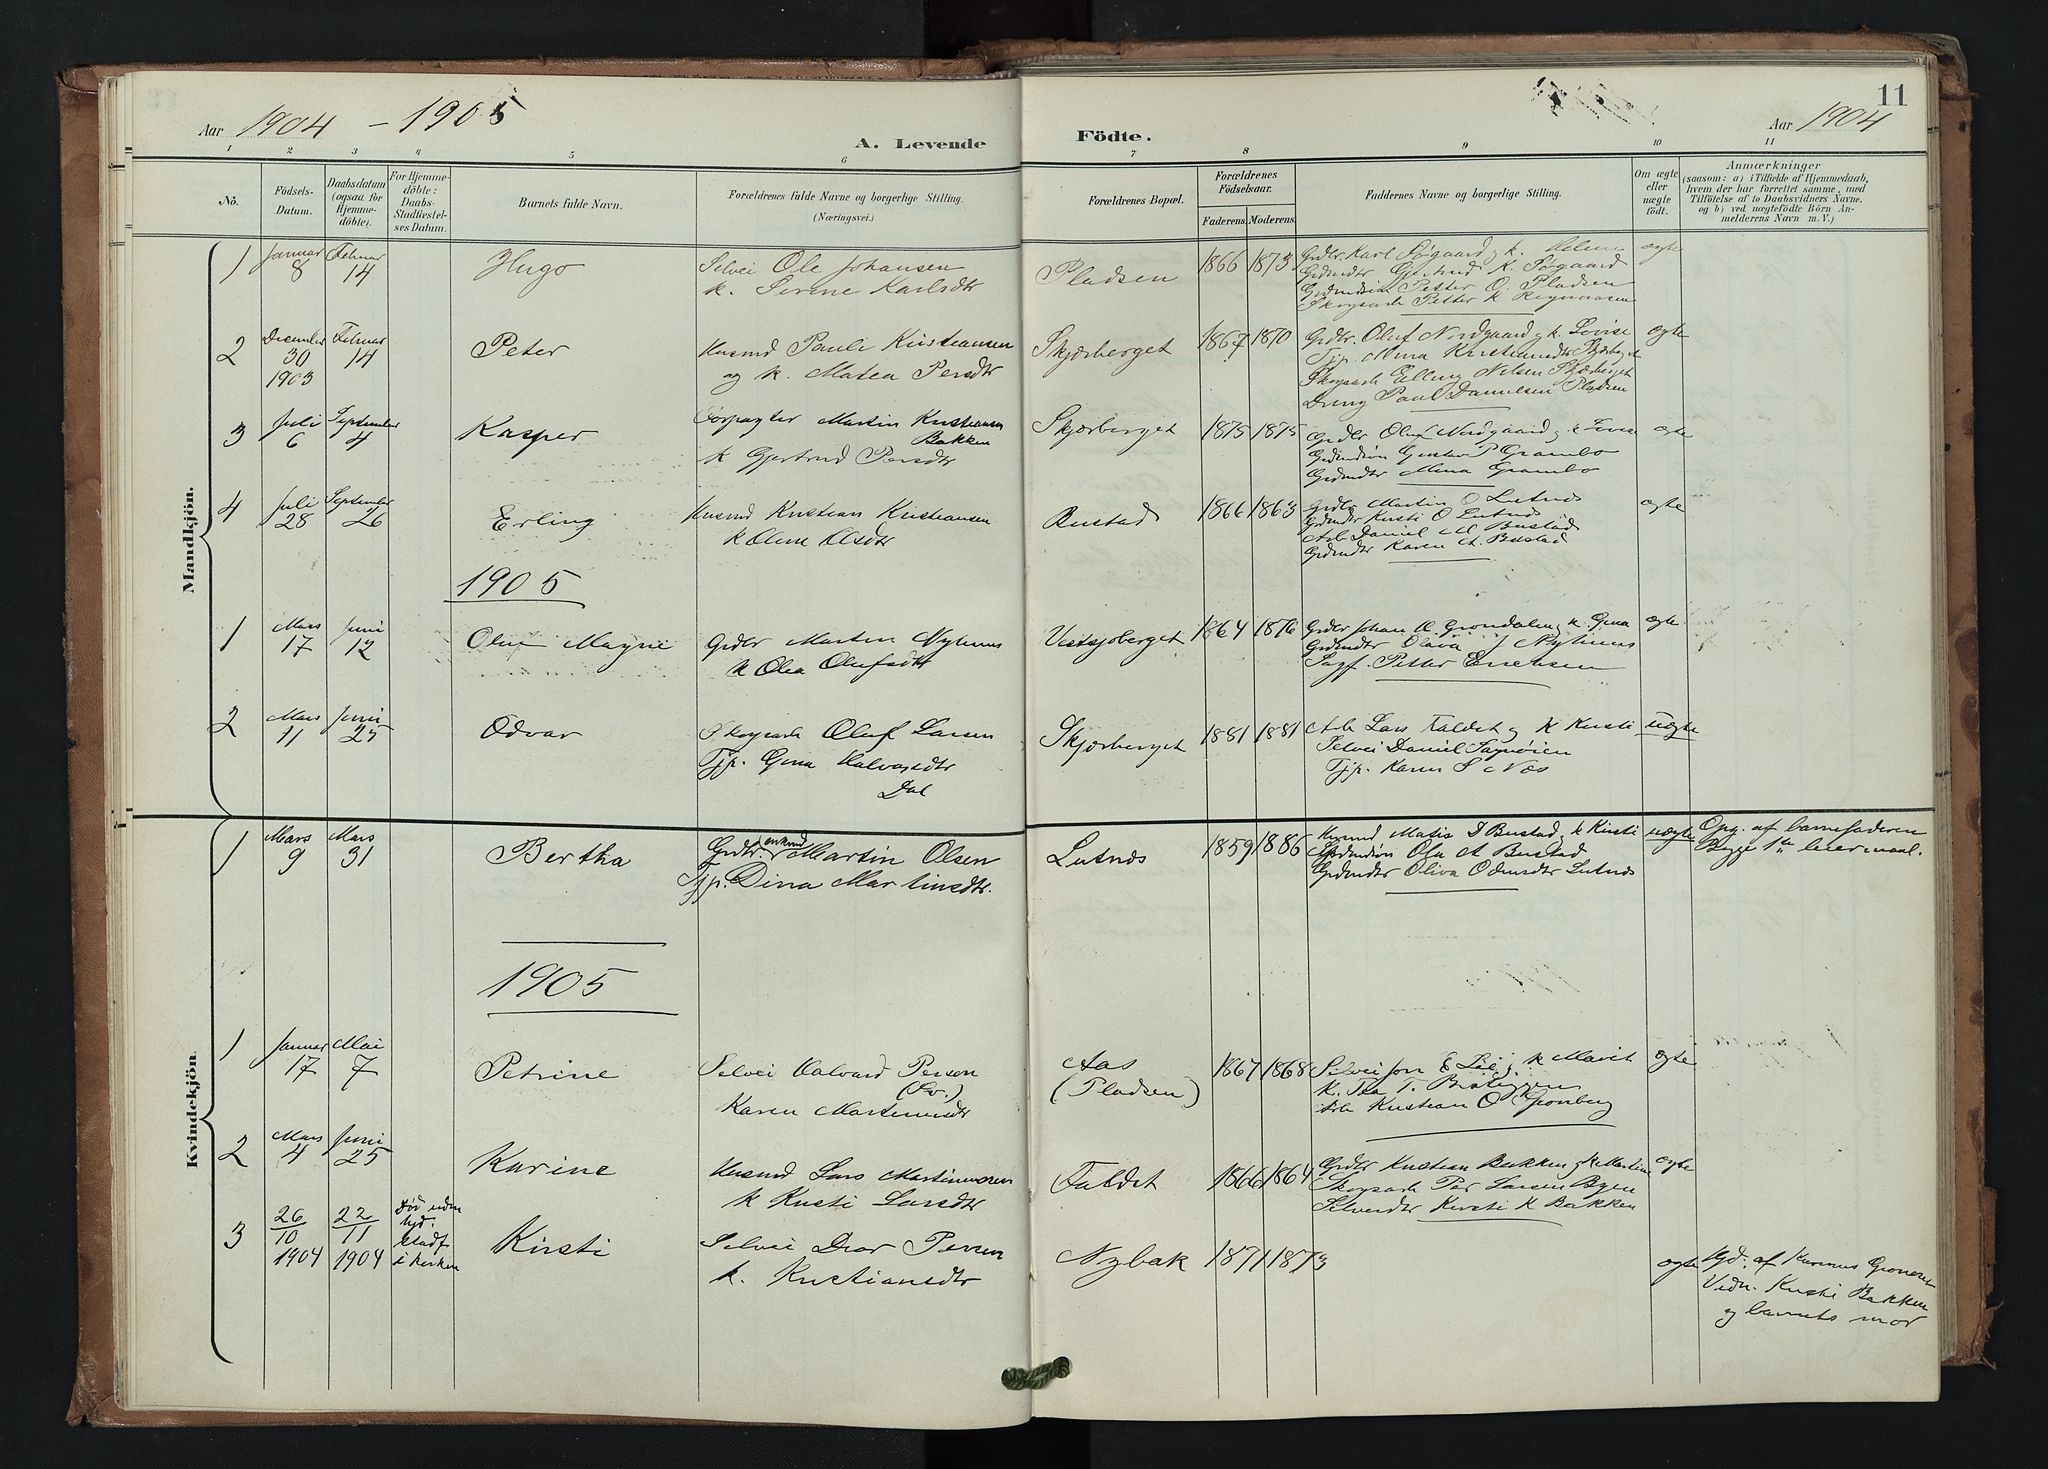 Aar 1904 - 1905
A. Levende
Fødte.
Aar 1904
11
1 2 3 4 5 6 7 8 9 10 11
No.
Födsels-
Datum.
Daabsdatum
(ogsaa for
Hjemme-
döbte).
For Hjemme-
döbte:
Daabs-
Stadfæstel-
ses Datum.
Barnets fulde Navn.
Forældrenes fulde Navne og borgerlige Stilling.
(Næringsvei.)
Forældrenes Bopæl.
Forældrenes
Födselsaar.
Faderens. Moderens.
Faddernes Navne og borgerlige Stilling.
Om ægte
eller
uægte
födt.
Anmærkninger
(saasom: a) i Tilfælde af Hjemmedaab,
hvem der har forrettet samme, med
Tilföielse af to Daabsvidners Navne.
og b) ved uægtefödte Börn An-
melderens Navn m. V.)
Mandkjön.
1
Januar
8
Februar
14
Hugo
Selvei Ole Johansen
k. Serine Karlsdtr
Pladsen
1866 1873
Grdbr. Karl Søgaard, k. Helene
Grdmdtr Gjertrud K. Søgaard
Grdmdsøn Petter O. Pladsen
Skogsarb Petter K
ægte
2
December
30
1903
Februar
14
Peter
Husmd Paul Kristiansen
og k. Matea Persdtr
Skjærberget
1867 1870
Grdbr. Oluf Nordgaard, k. Lovise
Tjp. Mina Kristiansdtr Skjærberget
Skogsarb Elling Nilsen Skjærberget
Dreng Paul Danielsen Pladsen
ægte
3
Juli
6
September
4
Kasper
Forpagter Martin Kristiansen
Bakken
k Gjertrud Persdtr
Skjærberget
1875 1875
Grdbr Oluf Nordgaard, k Lovise
Grdmdsøn Gustav P Grambo
Grdmdtr Mina Grambo
ægte
4
Juli
28
September
26
Erling
Husmd Kristian Kristiansen
k Oline Olsdtr
Bustad
1866 1863
Grdbr Martin O Lutnæs
Grdmdtr Kirsti O Lutnæs
Arb Daniel M Bustad
Grdmdtr Karen A. Bustad
ægte
1905
1
Mars
17
Juni
12
Oluf Magne
Grdbr Martin Nylænes
k Olea Olufsdtr
Vestsjøberget
1864 1876
Grdbr Johan K. Grøndalen, k. Gina
Grdmdtr Olava J Nylænes
Sagf. Petter Ericksen
ægte
2
Mars
11
Juni
25
Odvar
Skogsarb Oluf Larsen
Tjp. Gina Halvorsdtr
Dal
Skjærberget
1881 1881
Arb Lars Faldet og k Kirsti
Selvei Daniel Sagmoien
Tjp. Karen S. Næs
uægte
Kvindekjön.
1
Mars
9
Mars
31
Bertha
Grdbr. enkmd Martin Olsen
Tjp. Dina Martinsdtr.
Lutnæs
1859 1886
Husmd Matis D Bustad, k Kirsti
Grdmdsøn Ola A Bustad
Grdmdtr Oliva Odinsdtr Lutnæs
uægte
Opg. af barnefaderen
Begge 1ste leiermaal.
1905
1
Januar
17
Mai
7
Petrine
Selvei Halvard Person
(Sv.)
Karen Martinusdtr
Aas
(Pladsen)
1867 1868
Selvei Jon E Lie, k Marit
k. Ida T. Brateggen
Arb Kristian O Gronberg
ægte
2
Mars
4
Juni
25
Karine
Husmd Lars Martinussen
k Kirsti Larsdtr
Faldet
1866 1864
Grdbr Kristian Bakken, k Martine
Skogsarb Per Larsen Byen
Selveidtr Kirsti K Bakken
ægte
3
26
10
1904
22
11
1904
Død uden
hjd.
stadf
i kirken
Kirsti
Selvei Peder Persen
k. Kristiansdtr
Nybak
1871 1873
ægte
Hjd. af Karinus Groneret
Vidn. Kirsti Bakken
og barnets mor